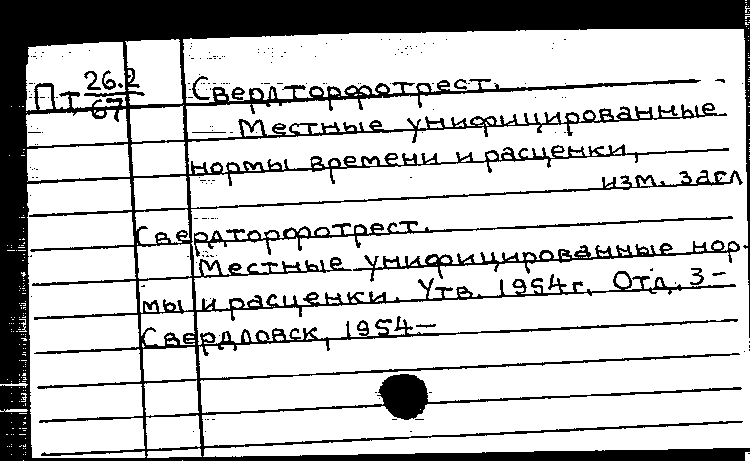 Пт 26.2/67 Свердторфотрест.
Местные унифицированные
нормы времени и расценки,
изм. загл
Свердторфотрест.
Местные унифицированные нор-
мы и расценки. Утв. 1954г. Отд. 3-
Свердловск, 1954-